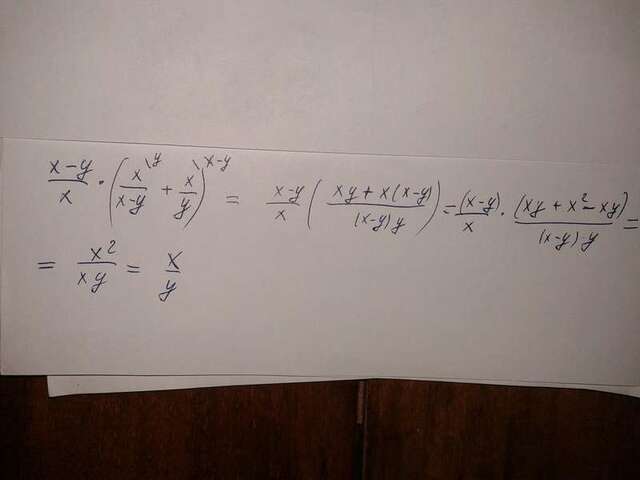 \frac{x-y}{x} \cdot \left( \frac{x^{\backslash y}}{x-y} + \frac{x^{\backslash x-y}}{y} \right) = \frac{x-y}{x} \left( \frac{xy+x(x-y)}{(x-y)y} \right) = \frac{(x-y)}{x} \cdot \frac{(xy+x^2-xy)}{(x-y) \cdot y} =
= \frac{x^2}{xy} = \frac{x}{y}